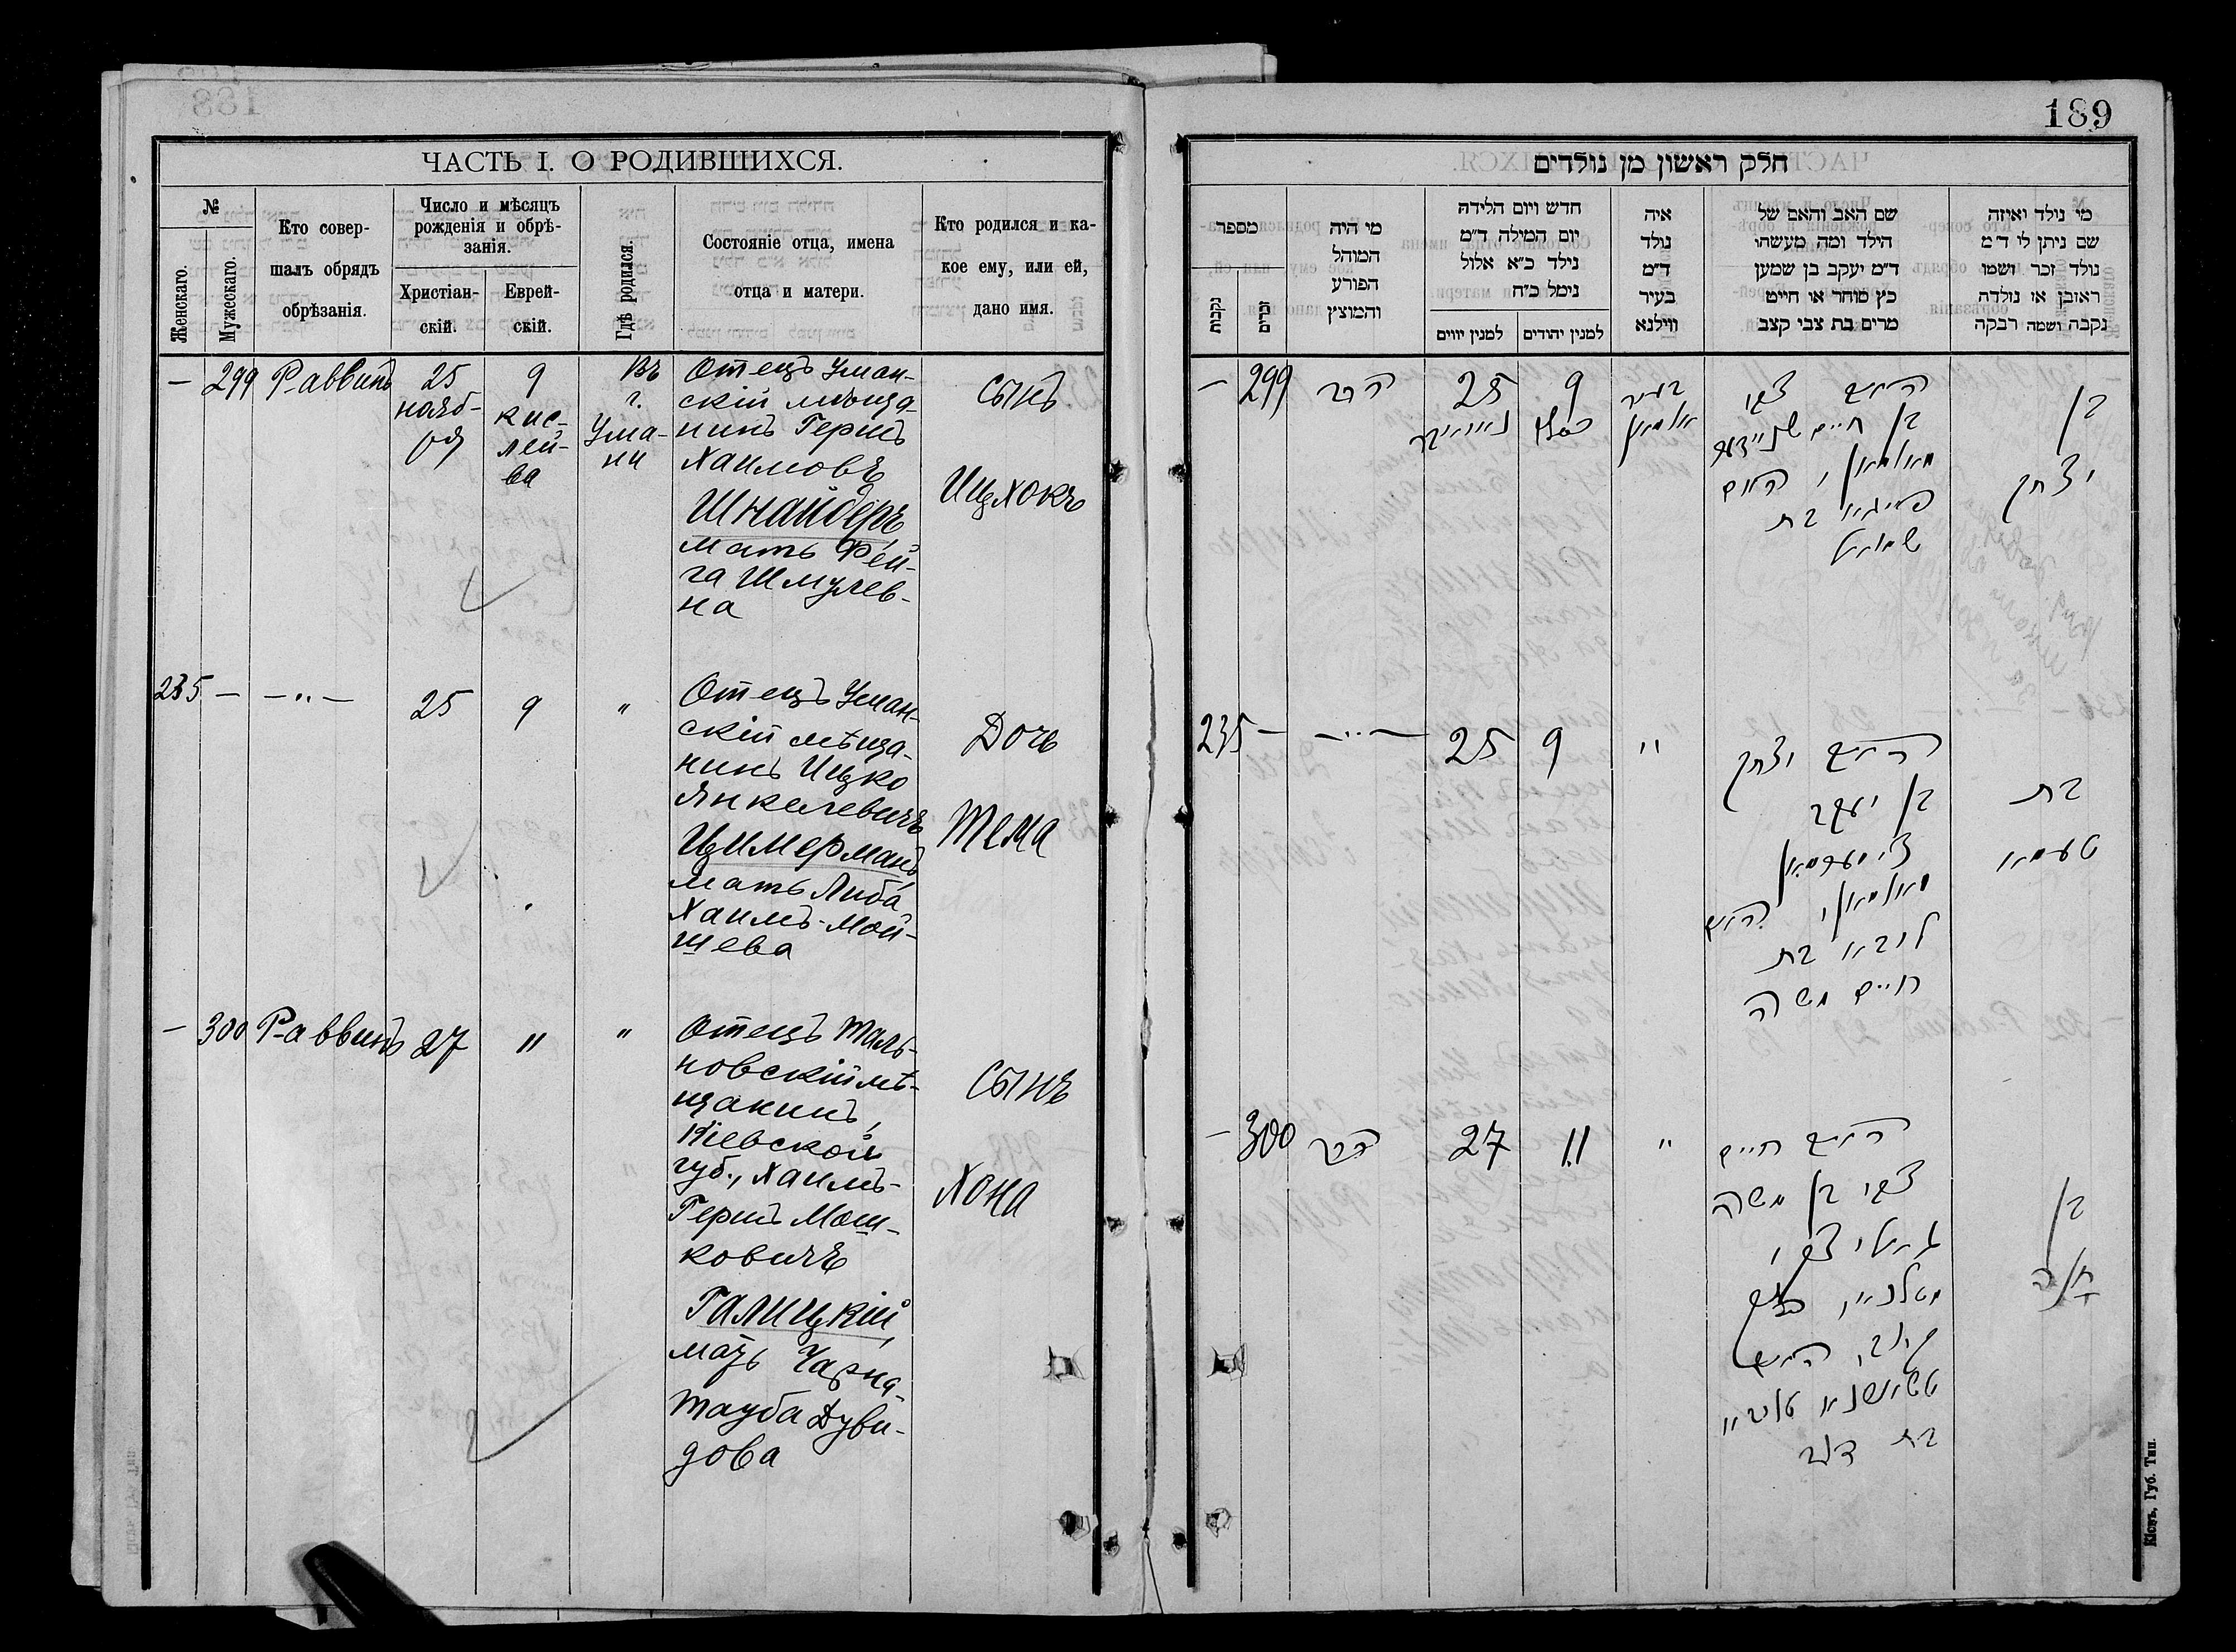 ЧАСТЬ I. О РОДИВШИХСЯ.
№
Женскаго.
Мужескаго.
Кто совер-
шалъ обрядъ
обрѣзанія.
Число и мѣсяцъ
рожденія и обрѣ-
занія.
Христіан-
скій.
Еврей-
скій.
Гдѣ родился.
Состояніе отца, имена
отца и матери.
Кто родился и ка-
кое ему, или ей,
дано имя.
— 299 Раввинъ
25
нояб-
ря
9
кис-
лей-
ва
Въ
г.
Ума-
ни
Отецъ Уман-
скій мѣща-
нинъ Гершъ
Хаимовъ
Шнайдеръ,
мать Фей-
га Шмулев-
на
сынъ
Ицхокъ
235 — —"— 25 9 "
Отецъ Уман-
скій мѣща-
нинъ Ицко
Янкелевичъ
Цимерманъ,
мать Либа
Хаимъ-Мой-
шева
Дочь
Тема
— 300 Раввинъ 27 11 "
Отецъ Таль-
новскій мѣ-
щанинъ,
Кіевской
губ., Хаимъ-
Гершъ Мош-
ковичъ
Галицкій,
мать Чарна-
Тауба Дуви-
дова
сынъ
Хона
189
חלק ראשון מן נולדים
מספר
נקבות
זכרים
מי היה
המוהל
הפורע
והמוצץ
חדש ויום הלידה
יום המילה ד"מ
נילד כ"א אלול
נימל כ"ח
למנין יווים
למנין יהודים
איה
נולד
ד"מ
בעיר
ווילנא
שם האב והאם של
הילד ומה מעשהו
ד"מ יעקב בן שמעון
כץ סוחר או חייט
מרים בת צבי קצב
מי נולד ואיזה
שם ניתן לו ד"מ
נולד זכר ושמו
ראובן או נולדה
נקבה ושמה רבקה
— 299 הרב
25
9
כסלו
בעיר
אומאן
האב צבי
בן חיים שניידער
מאומאן, האם
פייגא בת
שמואל
בן
יצחק
235 — —"— 25 9 "
האב יצחק
בן יעקב
צימערמאן
מאומאן, האם
ליבא בת
חיים משה
בת
טעמא
— 300 הרב 27 11 "
האב חיים
צבי בן משה
גאליצקי
האם
טאובא
בת דוב
בן
חנה
Кіевъ, Губ. Тип.